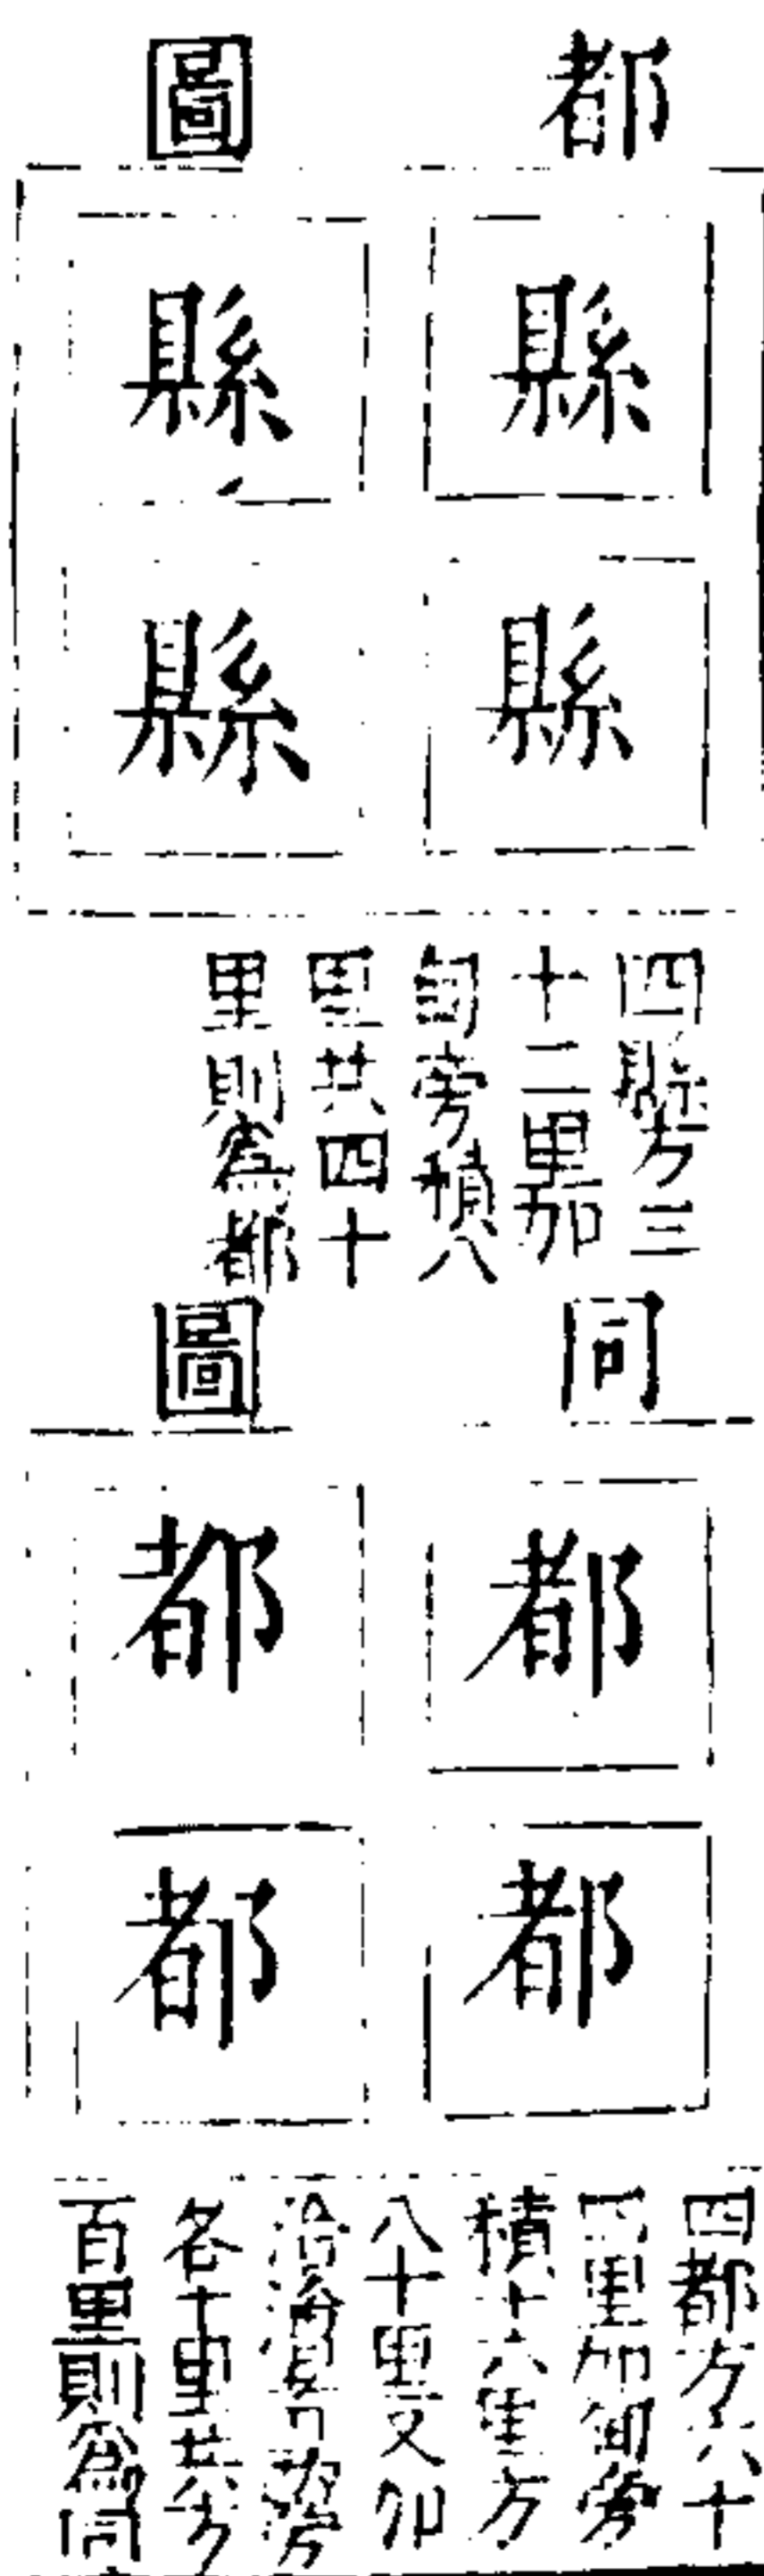 都圖
縣 縣
縣 縣
四縣方三
十二里加
旬旁積八
里共四十
里則為都
同圖
都 都
都 都
四都方六十
四里加旬旁
積十六里方
八十里又加
治澮旁
各十里共方
百里則為同